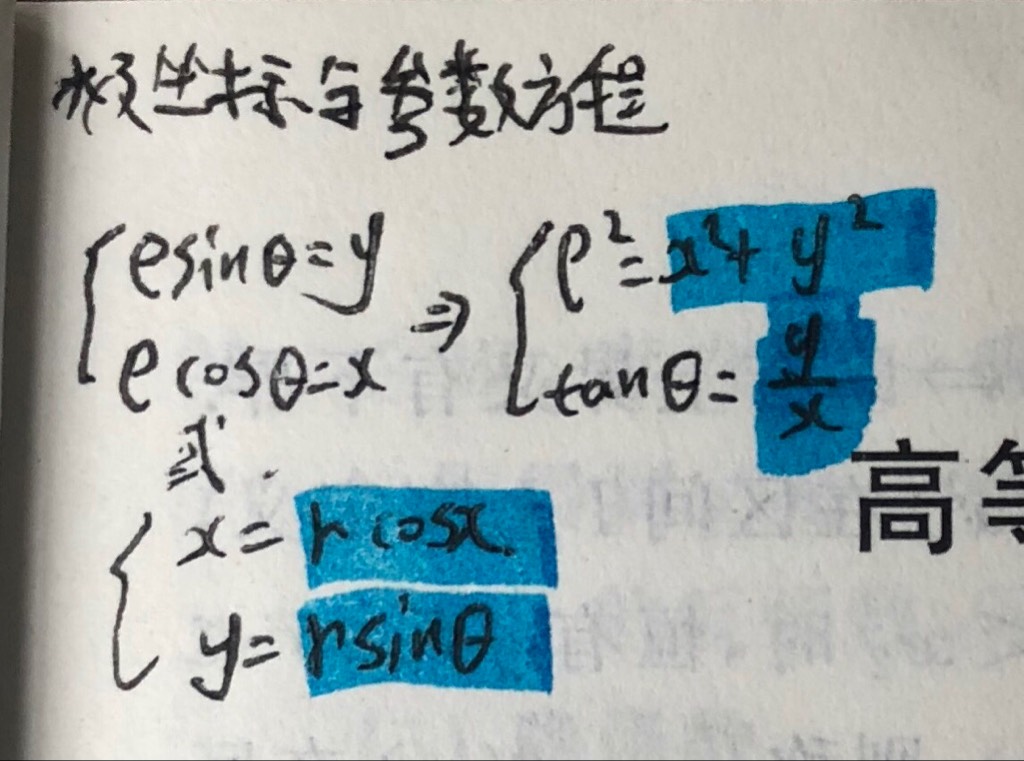 极坐标与参数方程
{ρsinθ=y
ρcosθ=x ⇒ {ρ²=x²+y²
tanθ=y/x
或.
{x=rcosx.
y=rsinθ
高等